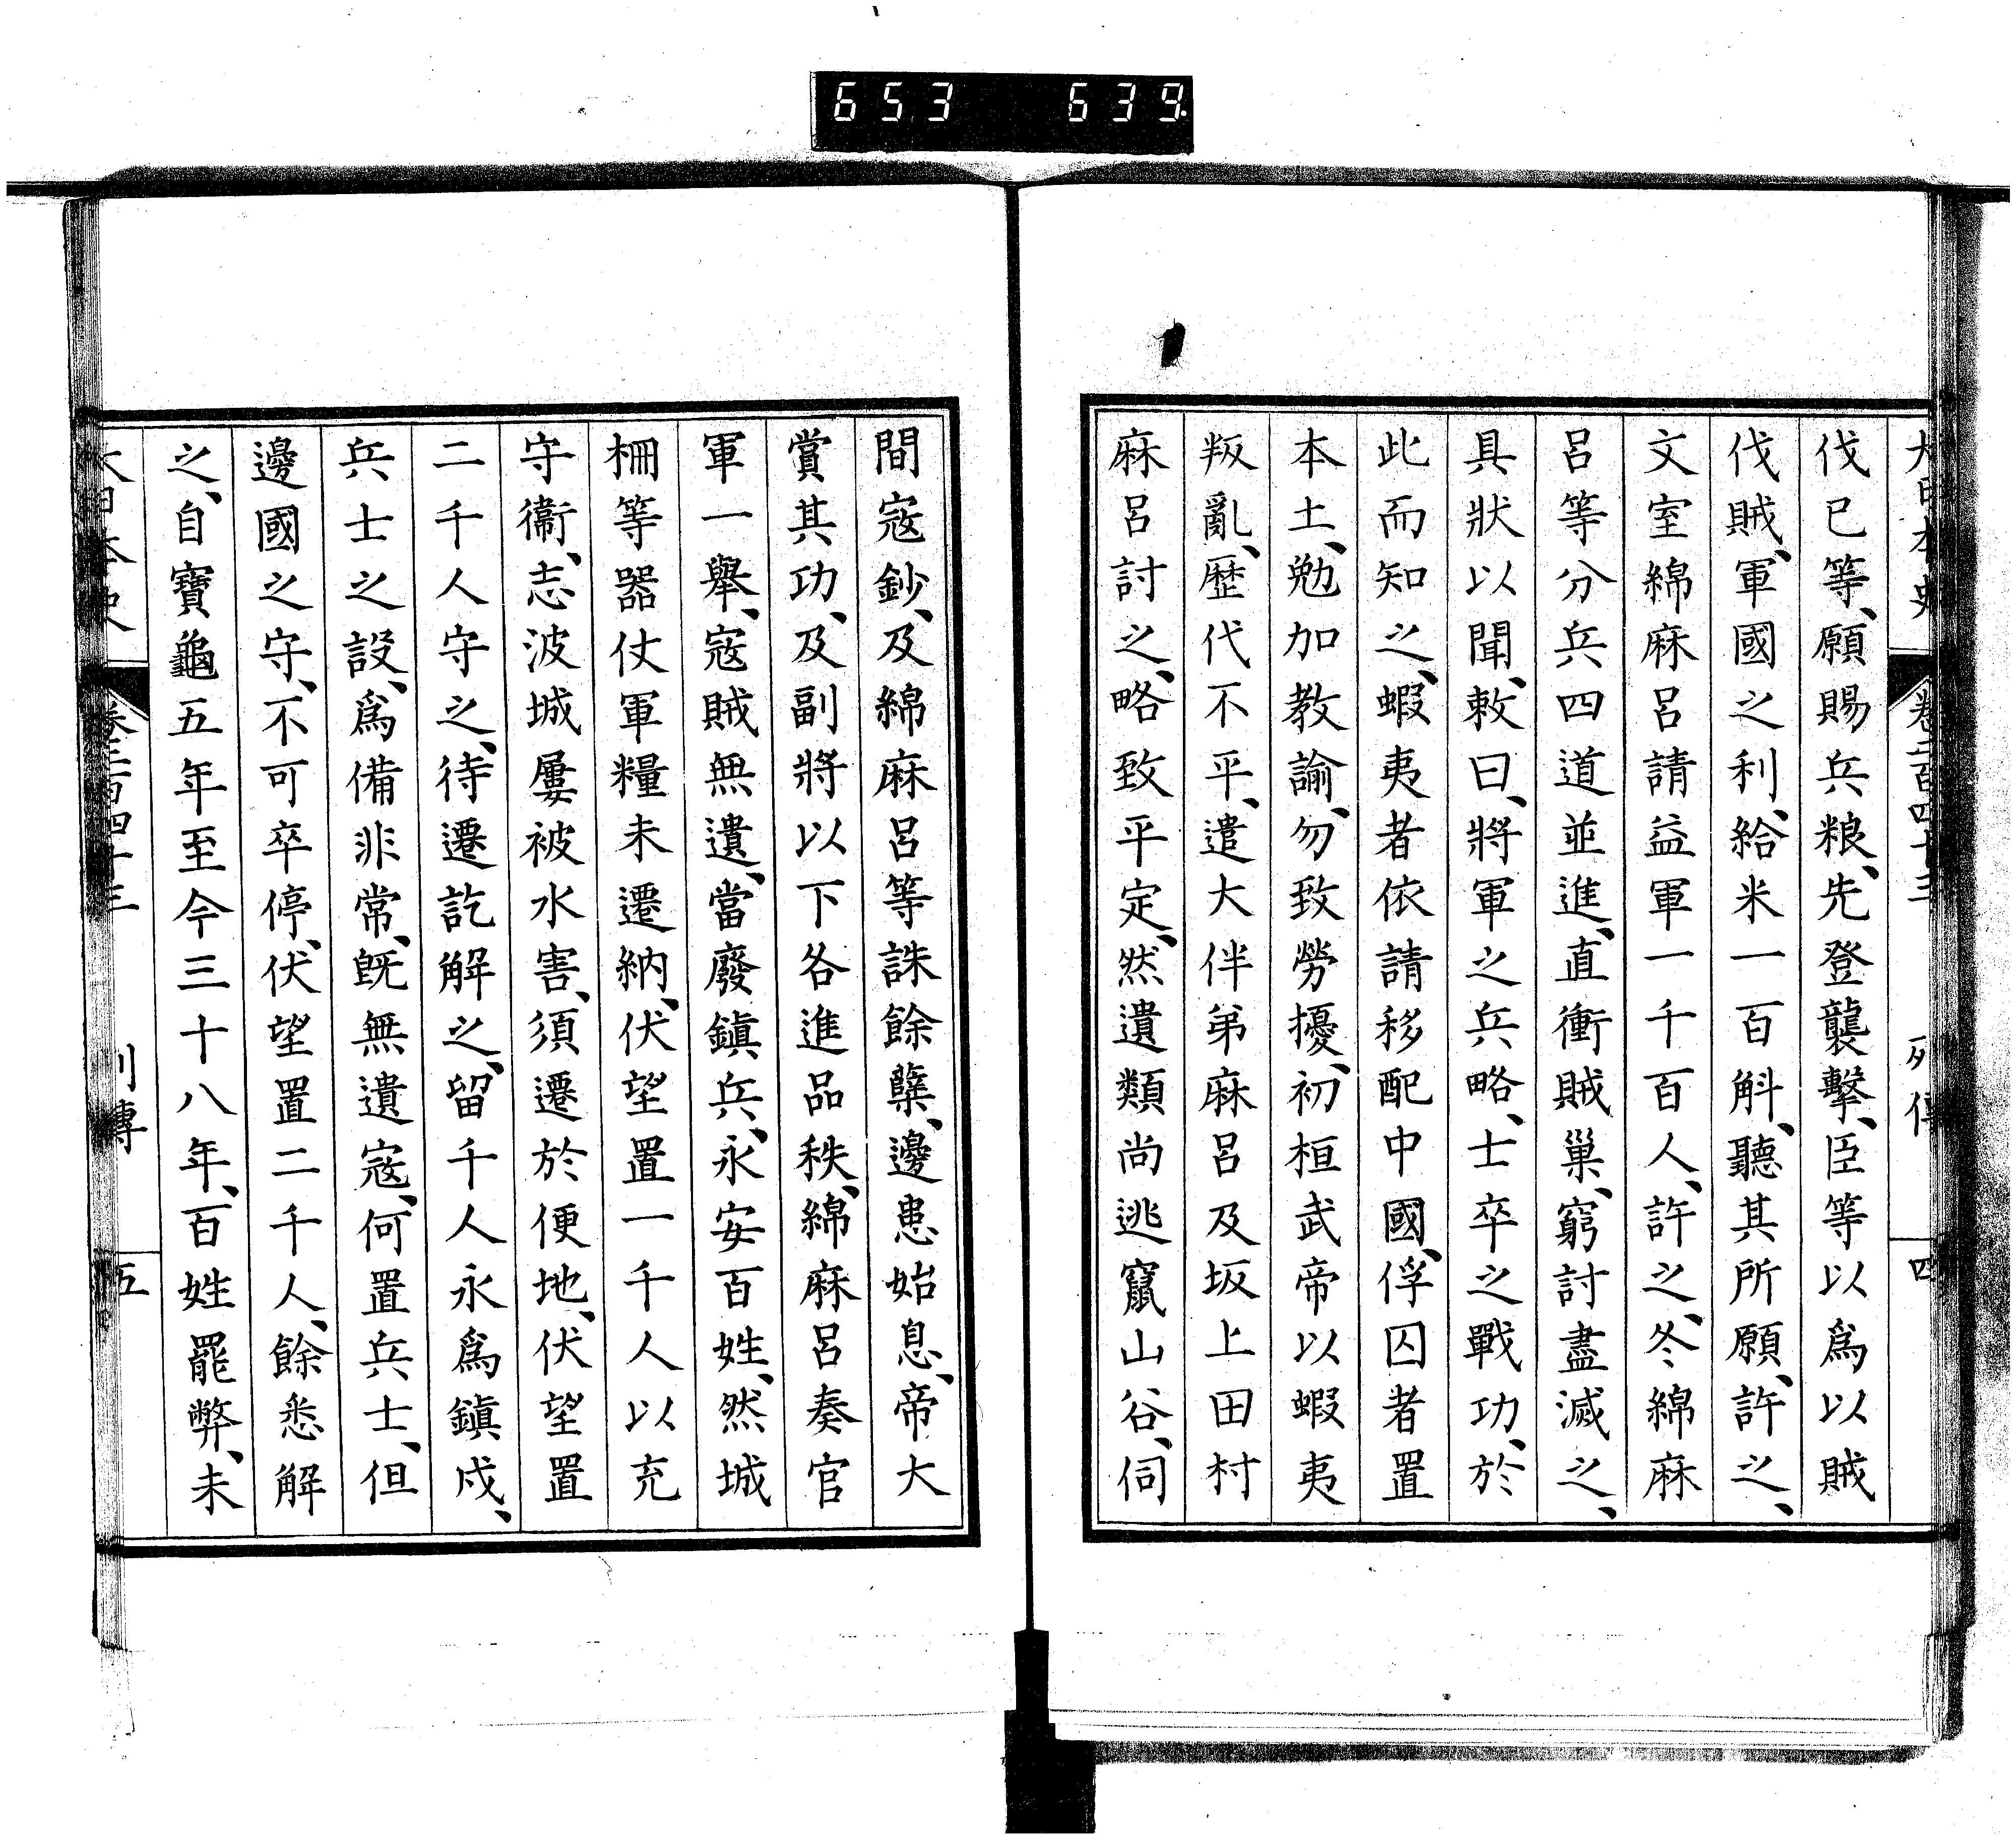 653 639
大日本史 卷二百四十三 列傳 四
伐已等、願賜兵粮、先登襲擊、臣等以爲以賊
伐賊、軍國之利、給米一百斛、聽其所願、許之、
文室綿麻呂請益軍一千百人、許之、冬綿麻
呂等分兵四道並進、直衝賊巢、窮討盡滅之、
具狀以聞、敕曰、將軍之兵略、士卒之戰功、於
此而知之、蝦夷者依請移配中國、俘囚者置
本土、勉加教諭、勿致勞擾、初桓武帝以蝦夷
叛亂、歷代不平、遣大伴弟麻呂及坂上田村
麻呂討之、略致平定、然遺類尚逃竄山谷、伺
間寇鈔、及綿麻呂等誅餘孽、邊患始息、帝大
賞其功、及副將以下各進品秩、綿麻呂奏官
軍一舉、寇賊無遺、當廢鎭兵、永安百姓、然城
柵等器仗軍糧未遷納、伏望置一千人以充
守衞、志波城屢被水害、須遷於便地、伏望置
二千人守之、待遷訖解之、留千人永爲鎭戍、
兵士之設、爲備非常、旣無遺寇、何置兵士、但
邊國之守、不可卒停、伏望置二千人、餘悉解
之、自寶龜五年至今三十八年、百姓罷弊、未
大日本史 卷二百四十三 列傳 五